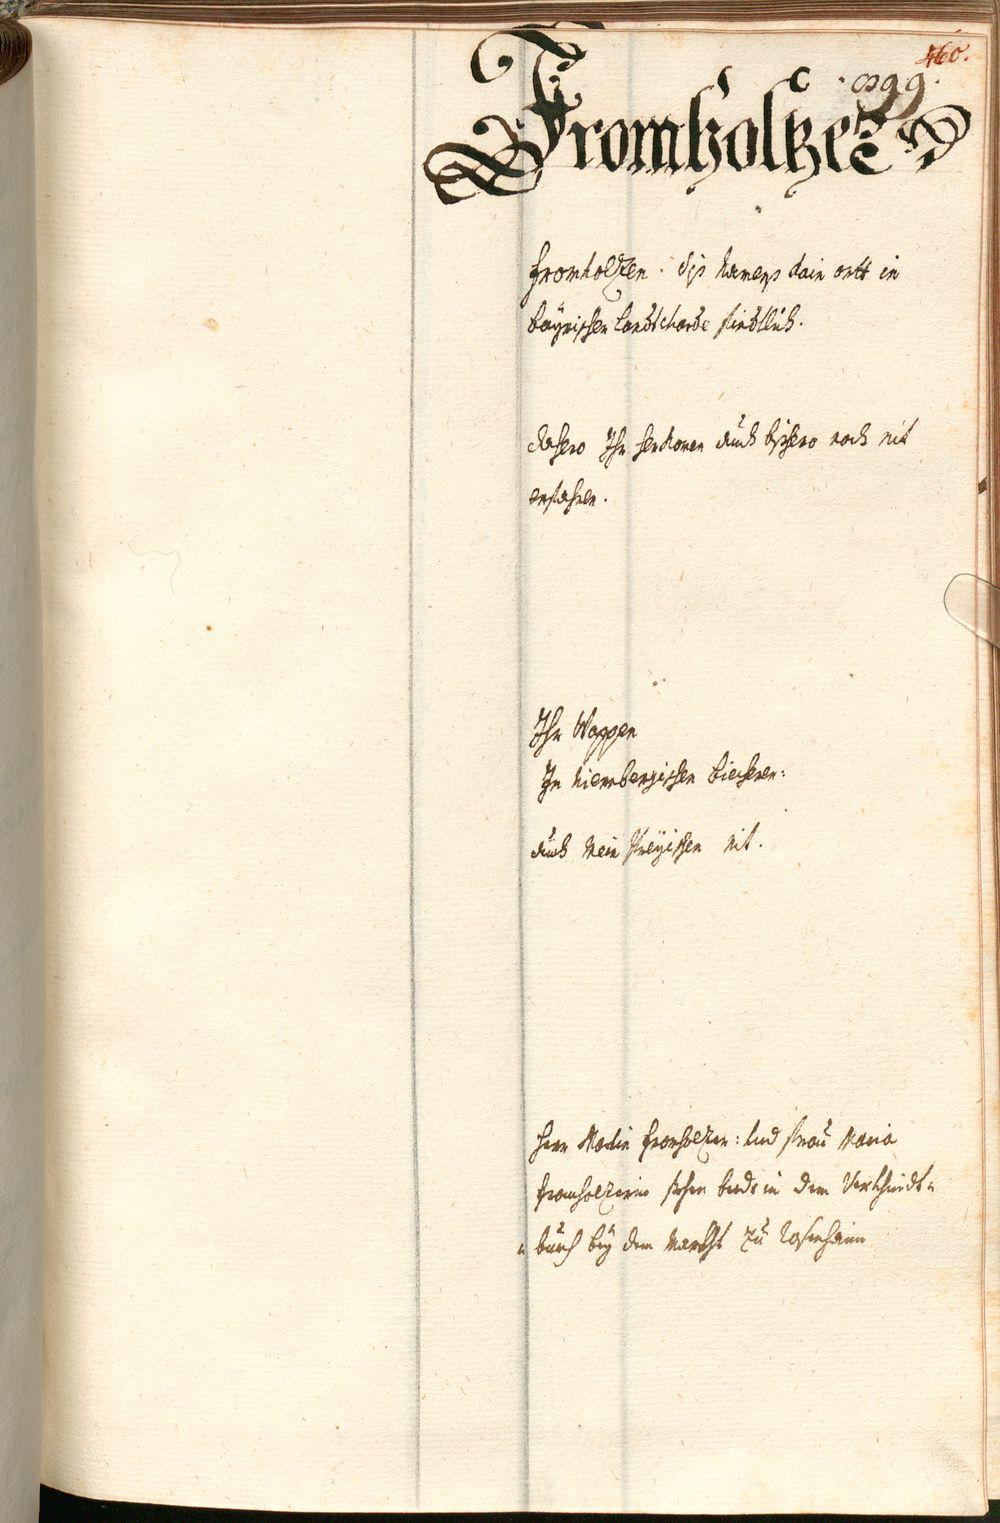 460.
899.
Fromholtzer
Fromholtzen. diß Namens kain ortt in
bayrischer Landtcharde findtlich.
dahero Ihr herkomen auch bißhero noch nit
erfahren.
Ihr Wappen
In Niernbergischen biecheren:
auch Mein Preyischen nit.
Herr Martin Fromholtzer: und Frau Maria
Fromholzerin stehen beede in dem Verkhindt-
buech bey dem Markht zu Rosenhaim